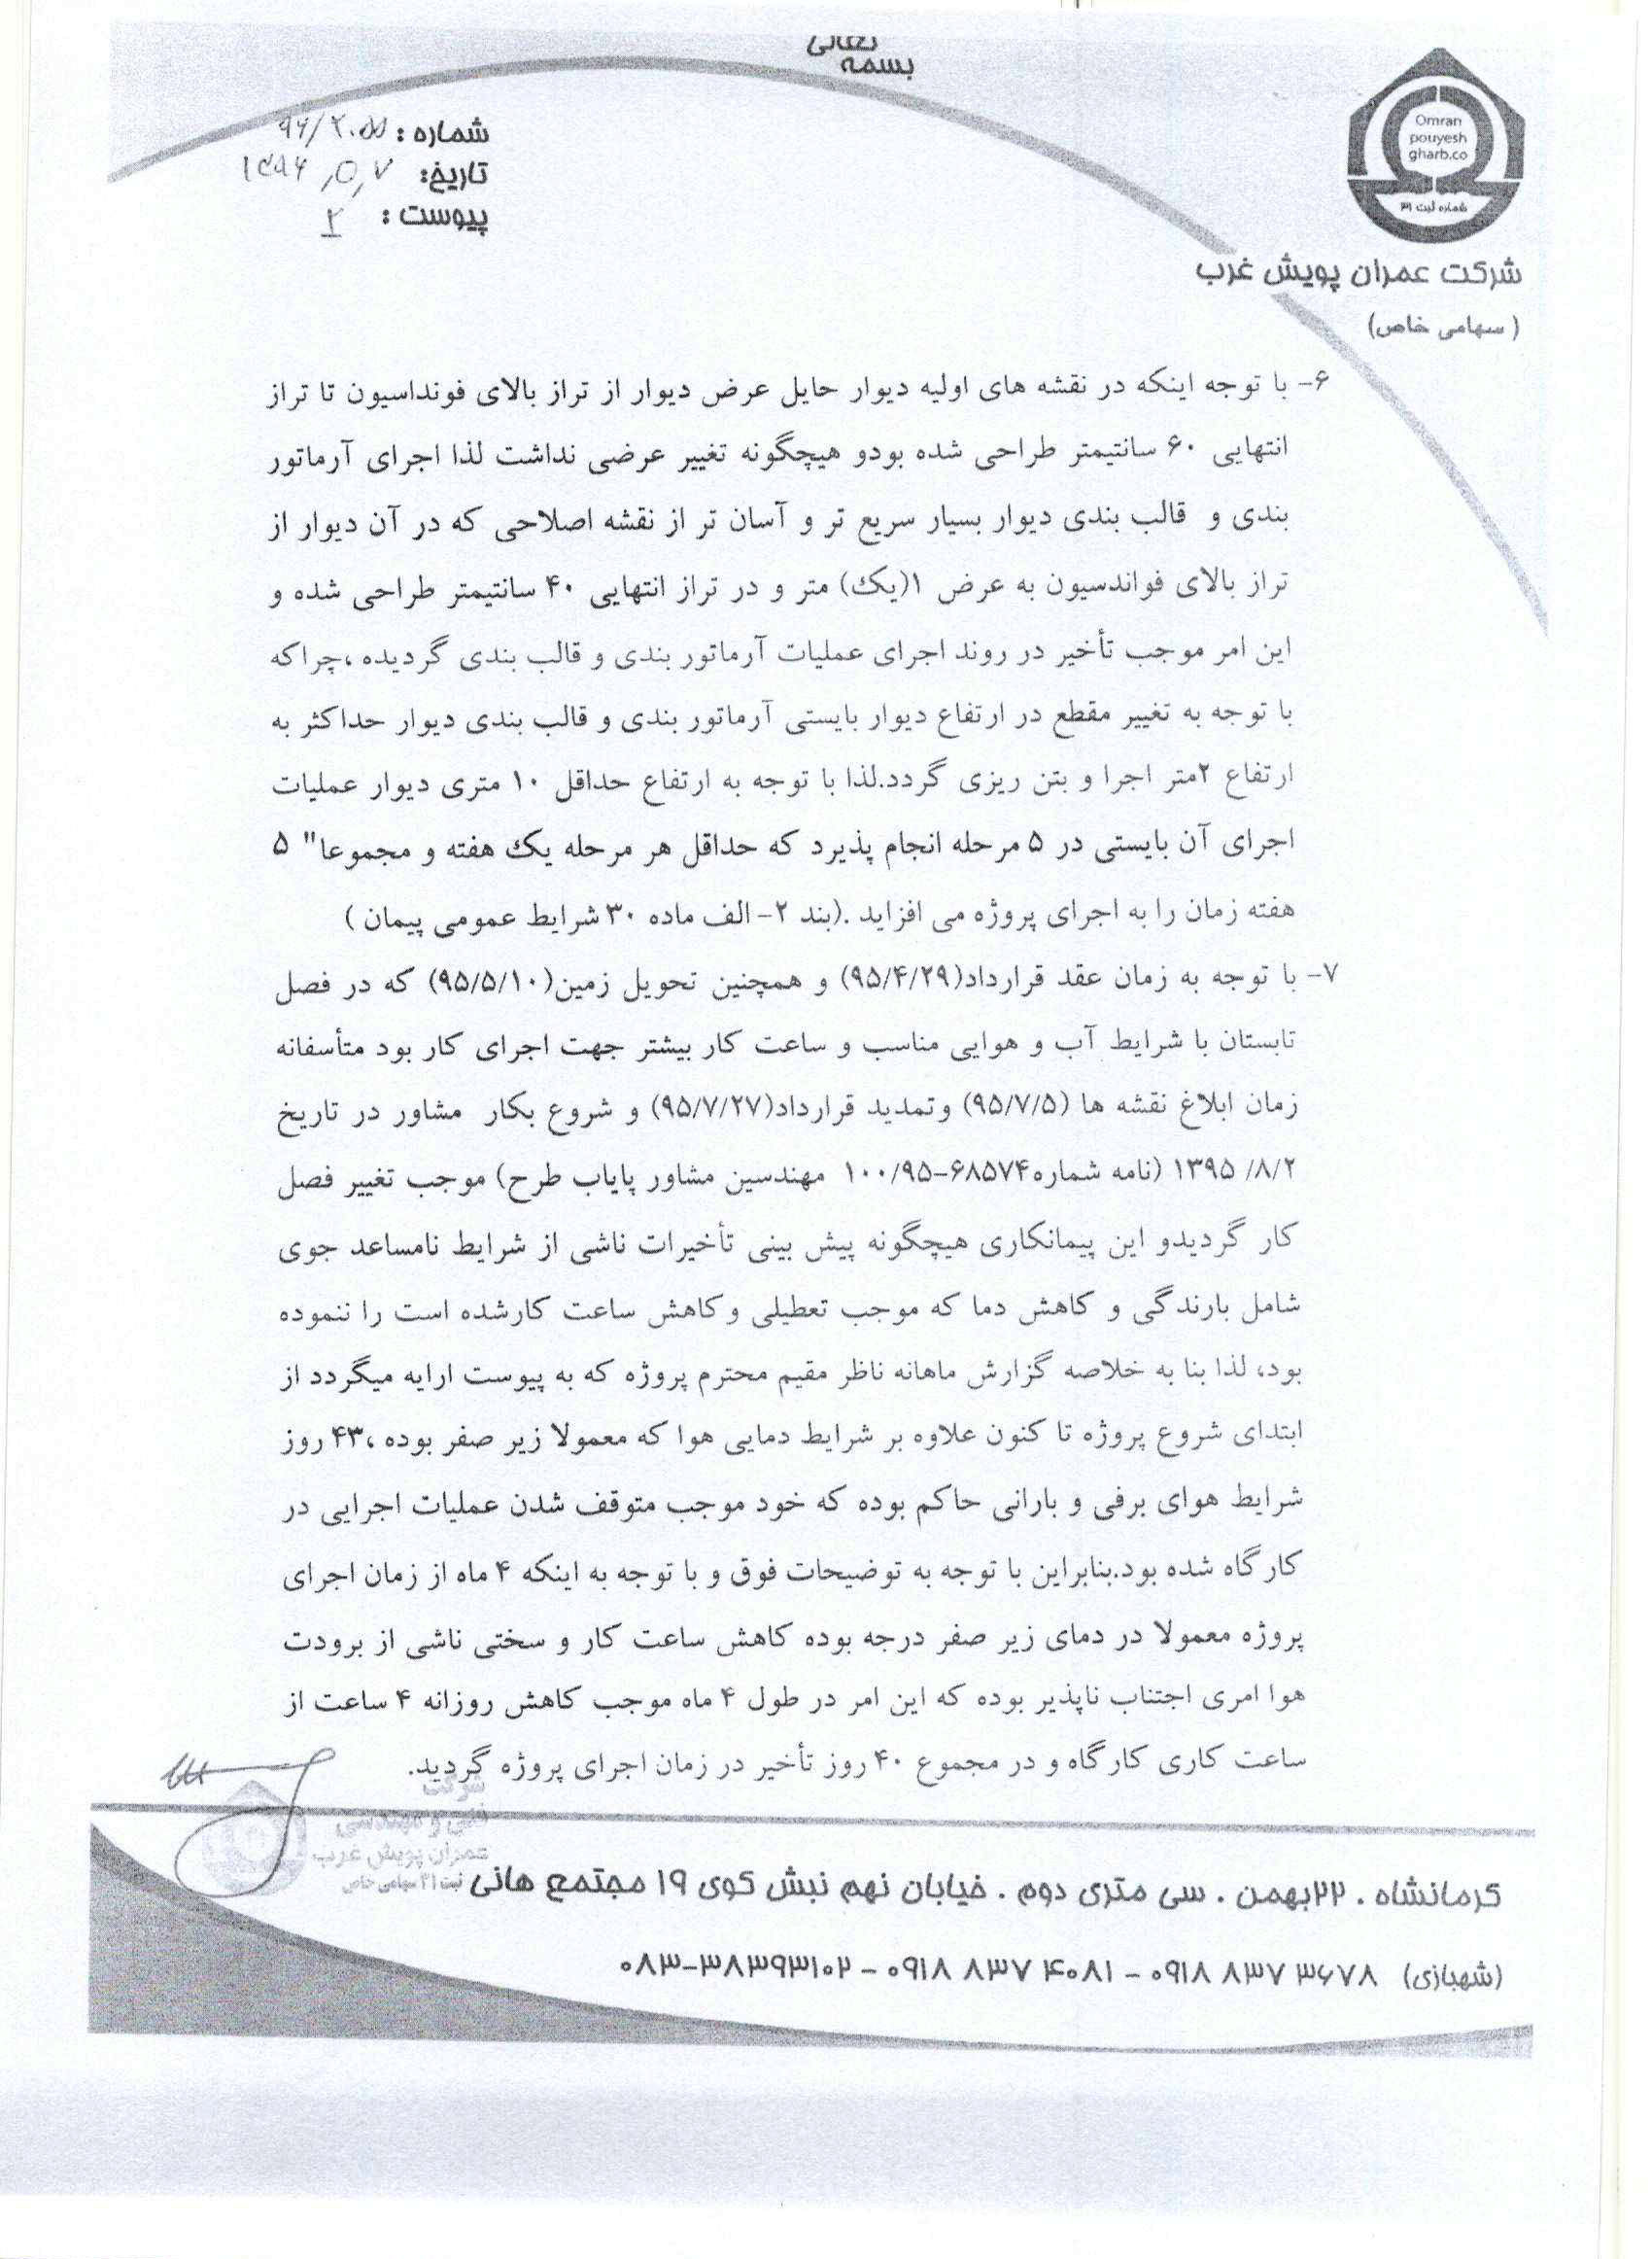 بسمه تعالی
Omran
pouyesh
gharb.co
شماره ثبت ۳۱
شرکت عمران پویش غرب
(سهامی خاص)
شماره : ۹۶/۲۰۵۵
تاریخ: ۱۳۹۶,۵,۷
پیوست : ۲
۶- با توجه اینکه در نقشه های اولیه دیوار حایل عرض دیوار از تراز بالای فونداسیون تا تراز
انتهایی ۶۰ سانتیمتر طراحی شده بودو هیچگونه تغییر عرضی نداشت لذا اجرای آرماتور
بندی و قالب بندی دیوار بسیار سریع تر و آسان تر از نقشه اصلاحی که در آن دیوار از
تراز بالای فواندسیون به عرض ۱(یک) متر و در تراز انتهایی ۴۰ سانتیمتر طراحی شده و
این امر موجب تأخیر در روند اجرای عملیات آرماتور بندی و قالب بندی گردیده ،چراکه
با توجه به تغییر مقطع در ارتفاع دیوار بایستی آرماتور بندی و قالب بندی دیوار حداکثر به
ارتفاع ۲متر اجرا و بتن ریزی گردد.لذا با توجه به ارتفاع حداقل ۱۰ متری دیوار عملیات
اجرای آن بایستی در ۵ مرحله انجام پذیرد که حداقل هر مرحله یک هفته و مجموعا" ۵
هفته زمان را به اجرای پروژه می افزاید .(بند ۲- الف ماده ۳۰ شرایط عمومی پیمان )
۷- با توجه به زمان عقد قرارداد(۹۵/۴/۲۹) و همچنین تحویل زمین(۹۵/۵/۱۰) که در فصل
تابستان با شرایط آب و هوایی مناسب و ساعت کار بیشتر جهت اجرای کار بود متأسفانه
زمان ابلاغ نقشه ها (۹۵/۷/۵) وتمدید قرارداد(۹۵/۷/۲۷) و شروع بکار مشاور در تاریخ
۱۳۹۵ /۸/۲ (نامه شماره۶۸۵۷۴-۱۰۰/۹۵ مهندسین مشاور پایاب طرح) موجب تغییر فصل
کار گردیدو این پیمانکاری هیچگونه پیش بینی تأخیرات ناشی از شرایط نامساعد جوی
شامل بارندگی و کاهش دما که موجب تعطیلی وکاهش ساعت کارشده است را ننموده
بود، لذا بنا به خلاصه گزارش ماهانه ناظر مقیم محترم پروژه که به پیوست ارایه میگردد از
ابتدای شروع پروژه تا کنون علاوه بر شرایط دمایی هوا که معمولا زیر صفر بوده ،۴۳ روز
شرایط هوای برفی و بارانی حاکم بوده که خود موجب متوقف شدن عملیات اجرایی در
کارگاه شده بود.بنابراین با توجه به توضیحات فوق و با توجه به اینکه ۴ ماه از زمان اجرای
پروژه معمولا در دمای زیر صفر درجه بوده کاهش ساعت کار و سختی ناشی از برودت
هوا امری اجتناب ناپذیر بوده که این امر در طول ۴ ماه موجب کاهش روزانه ۴ ساعت از
ساعت کاری کارگاه و در مجموع ۴۰ روز تأخیر در زمان اجرای پروژه گردید.
شرکت
فنی و مهندسی
عمران پویش غرب
ثبت ۳۱ سهامی خاص
کرمانشاه . ۲۲بهمن . سی متری دوم . خیابان نهم نبش کوی ۱۹ مجتمع هانی
(شهبازی) ۰۹۱۸ ۸۳۷ ۳۶۷۸ - ۰۹۱۸ ۸۳۷ ۴۰۸۱ - ۰۸۳-۳۸۳۹۳۱۰۲